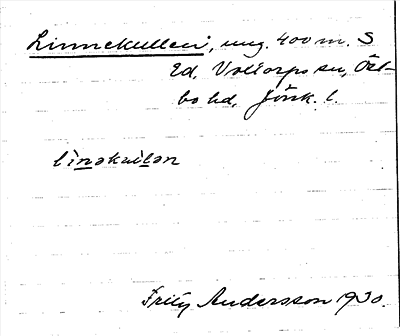 Linnekullen, ung. 400 m. S
Ed, Voxtorps sn, Öst-
bo hd, Jönk. l.
linəkulən
Fritz Andersson 1930.